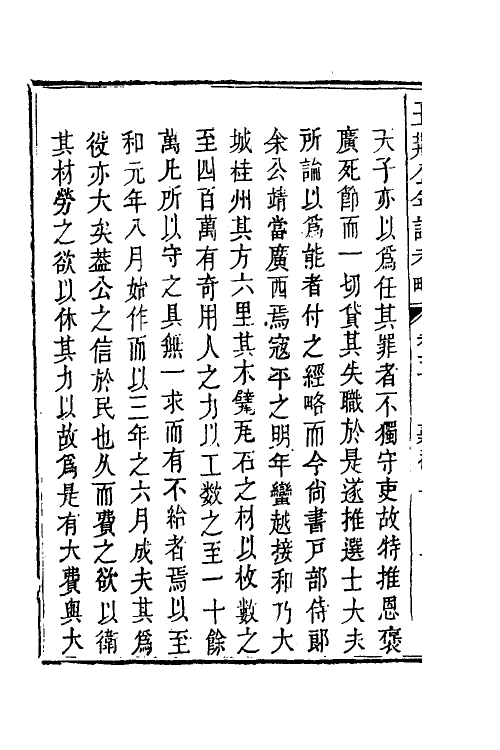 王荊公年譜考略
天子亦以爲任其罪者不獨守吏故特推恩褒
廣死節而一切貸其失職於是遂推選士大夫
所論以爲能者付之經略而今尚書戸部侍郎
余公靖當廣西焉寇平之明年蠻越接和乃大
城桂州其方六里其木甓瓦石之材以枚數之
至四百萬有奇用人之力以工數之至一十餘
萬凡所以守之具無一求而有不給者焉以至
和元年八月始作而以三年之六月成夫其爲
役亦大矣葢公之信於民也久而費之欲以衛
其材勞之欲以休其力以故爲是有大費與大